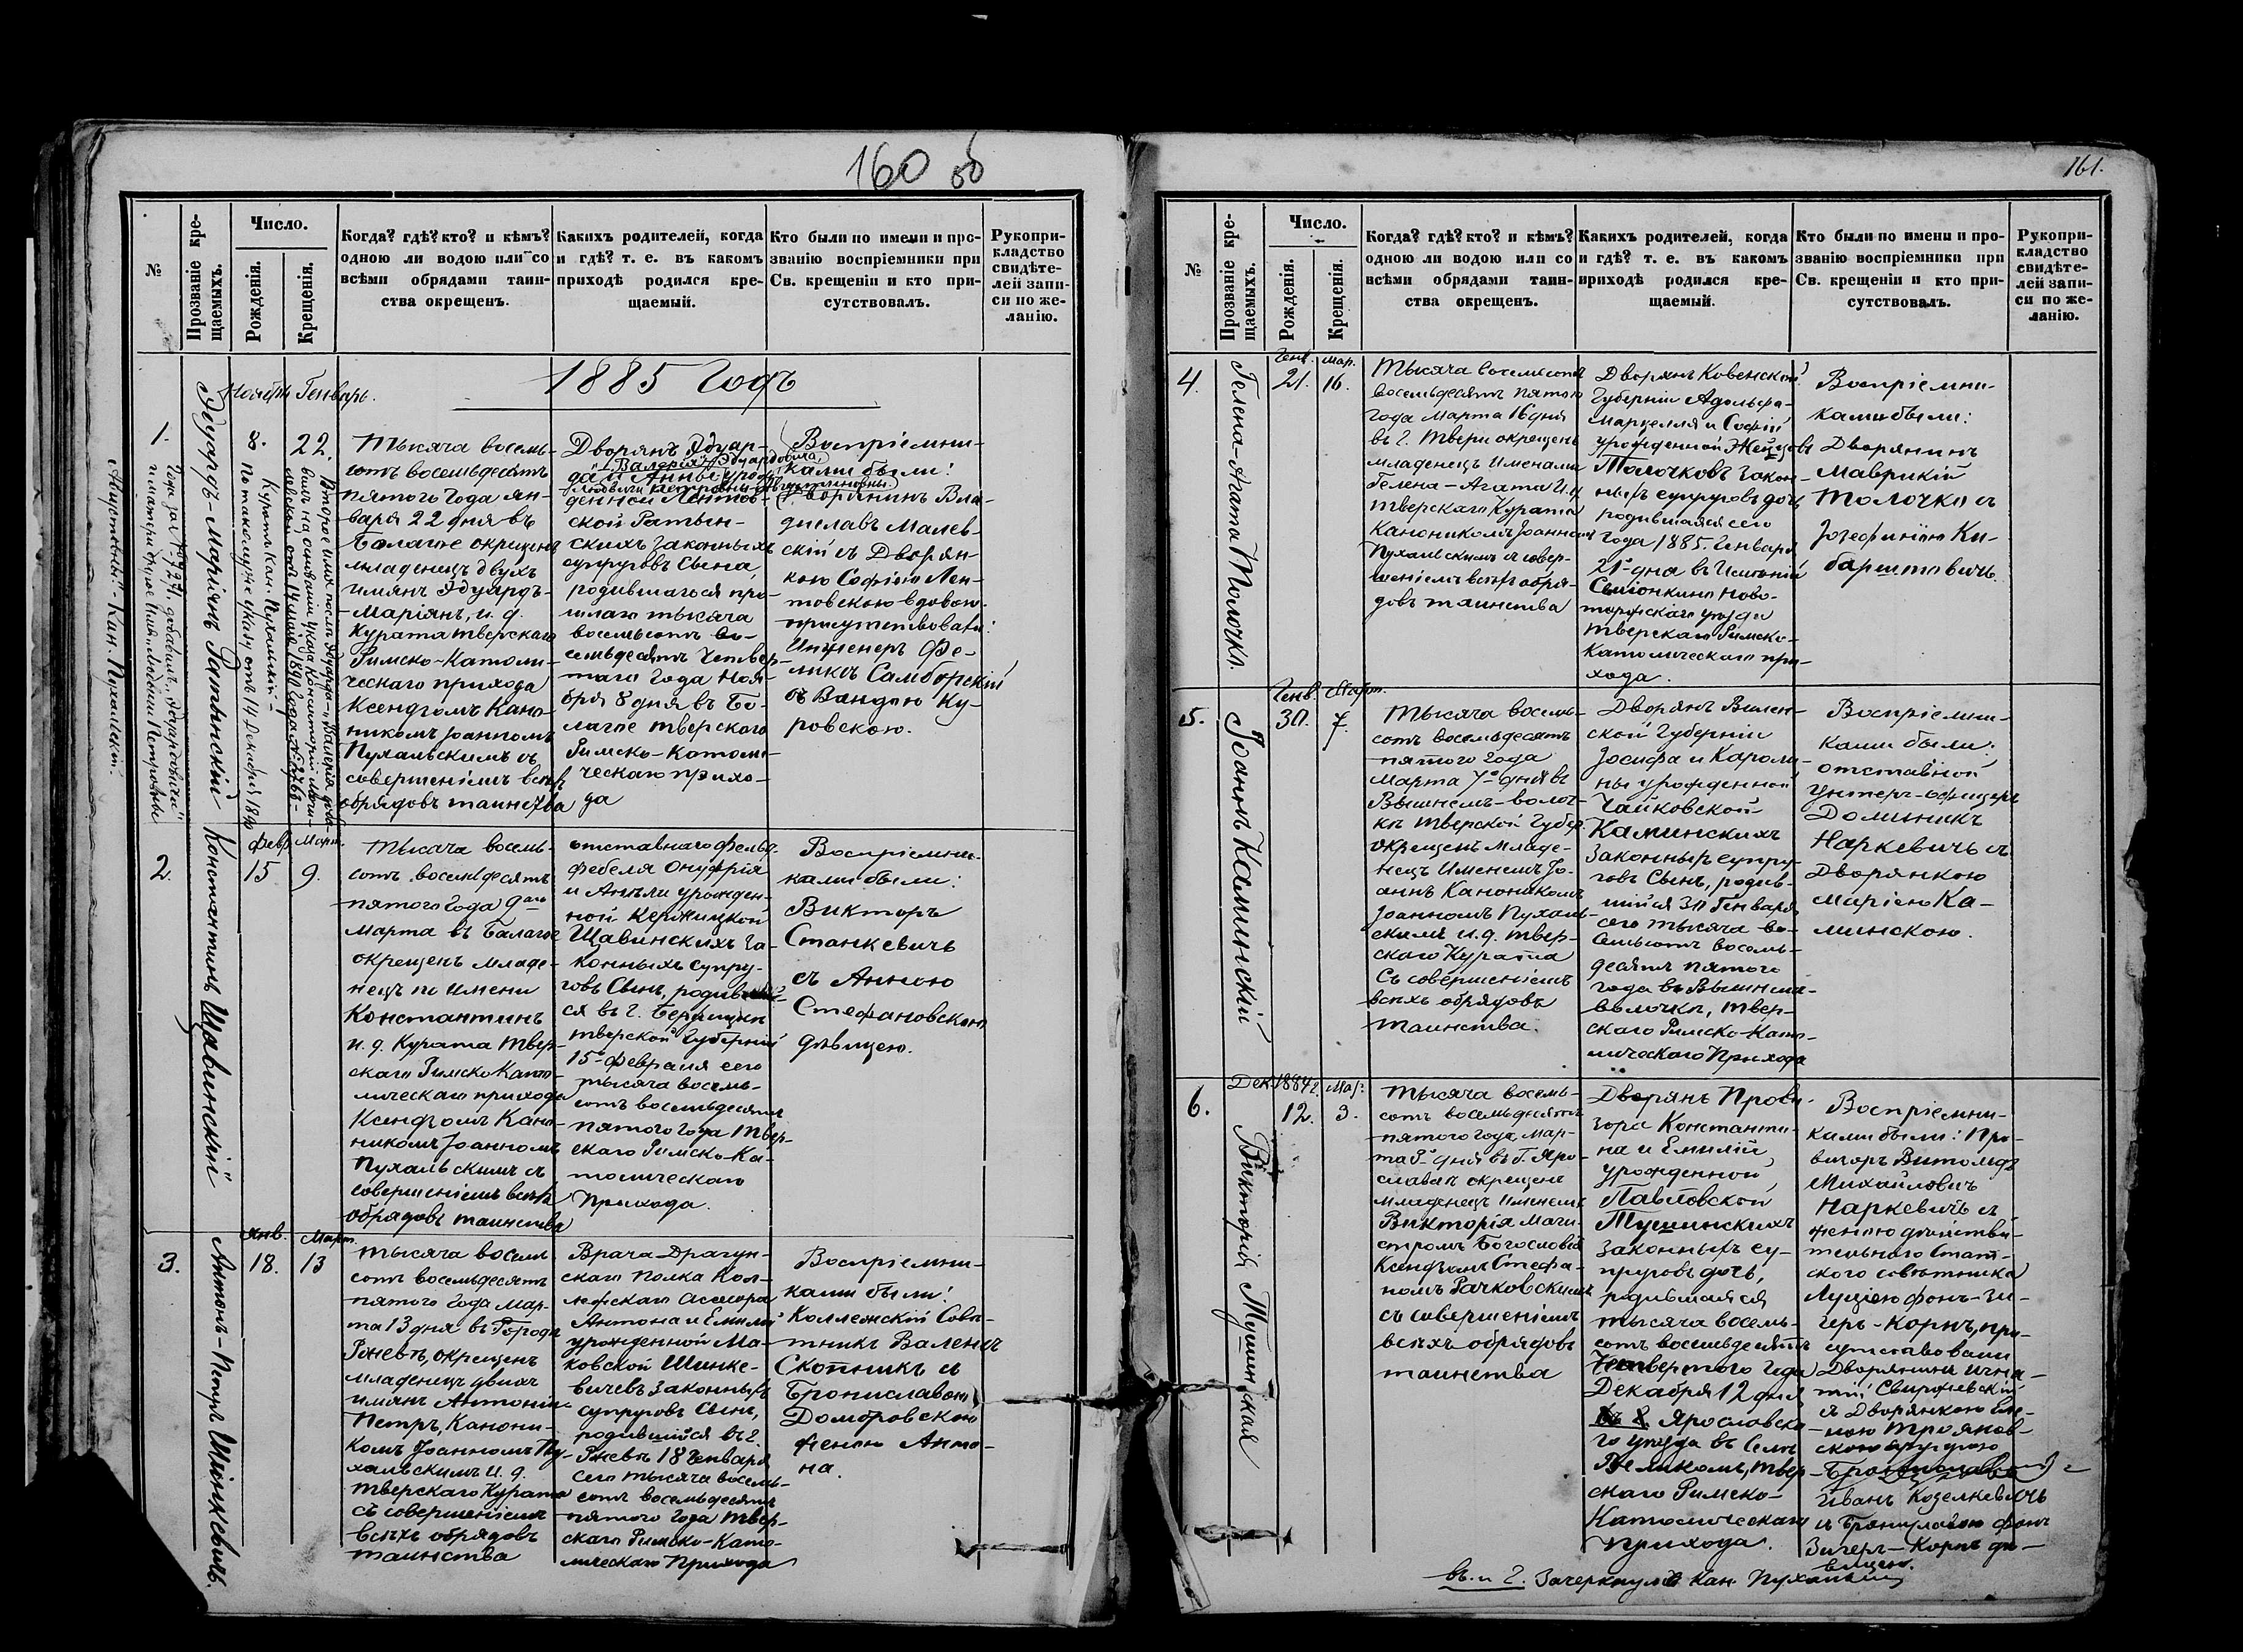 160 об
№
Прозваніе кре-
щаемыхъ.
Число.
Рожденія.
Крещенія.
Когда? гдѣ? кто? и кѣмъ?
одною ли водою или со
всѣми обрядами таин-
ства окрещенъ.
Какихъ родителей, когда
и гдѣ? т. е. въ какомъ
приходѣ родился кре-
щаемый.
Кто были по имени и про-
званію воспріемники при
Св. крещеніи и кто при-
сутствовалъ.
Рукопри-
кладство
свидѣте-
лей запи-
си по же-
ланію.
1885 Годъ
Ноября Генварь.
1.
Эдуардъ-Маріянъ Ратынскій
8.
22.
Тысяча восемь-
сотъ восемьдесятъ
пятого года ян-
варя 22 дня въ
Бологое окрещенъ
младенецъ двухъ
имянъ Эдуардъ-
Маріянъ, и. д.
Курата тверскаго
Римско-Католи-
ческаго прихода
Ксендзомъ Кано-
никомъ Іоанномъ
Пухальскимъ съ
совершеніемъ всѣхъ
обрядовъ таинства
Дворянъ Эдуар-
да "Валерія" Эдуардовича
и Анны урож-
Людвиги Петровны Августиновны
денной Лентов-
ской Ратын-
скихъ законныхъ
супруговъ сынъ,
родившагося про-
шлаго тысяча
восемьсотъ во-
семьдесятъ четвер-
таго года Ноя-
бря 8 дня въ Бо-
логое тверского
Римско-Католи-
ческаго прихо-
да
Воспріемни-
ками были:
Дворянинъ Вла-
диславъ Малев-
скій съ Дворян-
кою Софіею Лен-
товскою вдовою.
присутствовали:
Инженеръ Фе-
ликсъ Самборскій
съ Вандою Ку-
ровскою.
2.
Константинъ Щавинскій
Февр. Март.
15
9.
Тысяча восемь-
сотъ восемьдесятъ
пятого года 9го
марта въ Балагое
окрещенъ младе-
нецъ по имени
Константинъ
и. д. Курата Твер-
скаго Римско Като-
лическаго прихода
Ксендзомъ Кано-
никомъ Іоанномъ
Пухальскимъ съ
совершеніемъ всѣхъ
обрядовъ таинства
отставнаго фельд-
фебеля Онуфрія
и Анели урожден-
ной Кержицкой
Щавинскихъ за-
конныхъ супру-
говъ сынъ, родившій-
ся въ г.
тверской Губерніи
15 февраля сего
тысяча восемь-
сотъ восемьдесятъ
пятого года Твер-
скаго Римско-Ка-
толическаго
прихода.
Воспріемни-
ками были:
Викторъ
Станкевичъ
съ Анною
Стефановскою
дѣвицею.
3.
Антонъ-Петръ Шинкевичъ.
Янв. Март.
18.
13
Тысяча восемь
сотъ восемьдесятъ
пятого года Мар-
та 13 дня въ Городѣ
Ржевѣ, окрещенъ
младенецъ двухъ
имянъ Антоній
Петръ, Канони-
комъ Іоанномъ Пу-
хальскимъ и. д.
тверскаго Курата
съ совершеніемъ
всѣхъ обрядовъ
таинства
Врача Драгун-
скаго полка Кол-
лежскаго асессора
Антона и Емиліи
урожденной Ма-
ковской Шинке-
вичевъ законныхъ
супруговъ сынъ,
родившійся въ г.
Ржевѣ 18 Генваря
сего тысяча восемь-
сотъ восемьдесятъ
пятого года Твер-
скаго Римско-Като-
лическаго Прихода
Воспріемни-
ками были:
Коллежскій Совѣ-
тникъ Валенъ
Скотникъ и
Брониславою
Домбровскою
женою Анто-
на.
161.
№
Прозваніе кре-
щаемыхъ.
Число.
Рожденія.
Крещенія.
Когда? гдѣ? кто? и кѣмъ?
одною ли водою или со
всѣми обрядами таин-
ства окрещенъ.
Какихъ родителей, когда
и гдѣ? т. е. въ какомъ
приходѣ родился кре-
щаемый.
Кто были по имени и про-
званію воспріемники при
Св. крещеніи и кто при-
сутствовалъ.
Рукопри-
кладство
свидѣте-
лей запи-
си по же-
ланію.
4.
Гелена-Агата Толочко.
Генв. Мар.
21.
16.
Тысяча восемьсотъ
восемьдесятъ пятого
года марта 16 дня
въ г. Твери окрещенъ
младенецъ именами
Гелена-Агата и. д.
тверскаго Курата
Каноникомъ Іоанномъ
Пухальскимъ съ совер-
шеніемъ всѣхъ обря-
довъ таинства
Дворянъ Ковенской
Губерніи Адольфа-
Марцелля и Софіи
урожденной
Толочковъ закон-
ныхъ супруговъ дочь
родившаяся сего
года 1885. Генваря
21 дня въ имѣніи
Ново-
торжскаго уѣзда
тверскаго Римско-
католическаго при-
хода.
Воспріемни-
ками были:
Дворянинъ
Маврикій
Толочко съ
Іозефиною Ки-
бартовичъ
5.
Іоаннъ Каминскій
Генв. Март.
30.
7.
Тысяча восемь-
сотъ восемьдесятъ
пятого года
марта 7го дня въ
Вышнемъ-волоч-
кѣ Тверской Губер.
окрещенъ младе-
нецъ именемъ Іо-
аннъ Каноникомъ
Іоанномъ Пухаль-
скимъ и. д. твер-
скаго Курата
съ совершеніемъ
всѣхъ обрядовъ
таинства.
Дворянъ Вилен-
ской Губерніи
Іосифа и Кароли-
ны урожденной
Чайковской
Каминскихъ
законныхъ супру-
говъ сынъ, родив-
шійся 30 Генваря
сего тысяча во-
семьсотъ восемь-
десятъ пятого
года въ Вышнемъ-
волочкѣ, Твер-
скаго Римско-Като-
лическаго Прихода
Воспріемни-
ками были:
отставной
унтеръ-офицеръ
Доминикъ
Наркевичъ съ
Дворянкою
Маріею Ка-
минскою.
6.
Викторія Тушинская
Дек. 1884 г. Мар.
12.
3.
Тысяча восемь-
сотъ восемьдесятъ
пятого года, Мар-
та 3 дня въ Г. Яро-
славлѣ окрещенъ
младенецъ именемъ
Викторія Маги-
стромъ Богословія
Ксендзомъ Стефа-
номъ Рачковскимъ
съ совершеніемъ
всѣхъ обрядовъ
таинства
Дворянъ Прови-
зора Константи-
на и Емиліи,
урожденной
Павловской
Тушинскихъ
законныхъ су-
пруговъ дочь,
родившаяся
тысяча восемь-
сотъ восемьдесятъ
четвертого года
Декабря 12 дня
въ г. Ярославска-
го уѣзда въ селѣ
Великомъ, Твер-
скаго Римско-
Католическаго
прихода.
Воспріемни-
ками были: Про-
визоръ Витольдъ
Михайловичъ
Наркевичъ съ
женою дѣйстви-
тельнаго Стат-
скаго совѣтника
Луціею фонъ-Зи-
геръ-Корнъ, при-
сутствовали
Дворянинъ Игна-
тій Свиржевскій
съ Дворянкою Еле-
ною Трояновс-
кою
Иванъ Козелкевичъ
съ Брониславою фонъ
Зигеръ-Корнъ дѣ-
вицею.
въ. и г. Зачеркнулъ Кан. Пухальскій